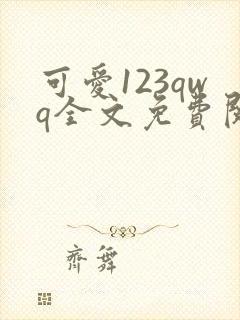 可愛123qw
q全文免費
齊舞